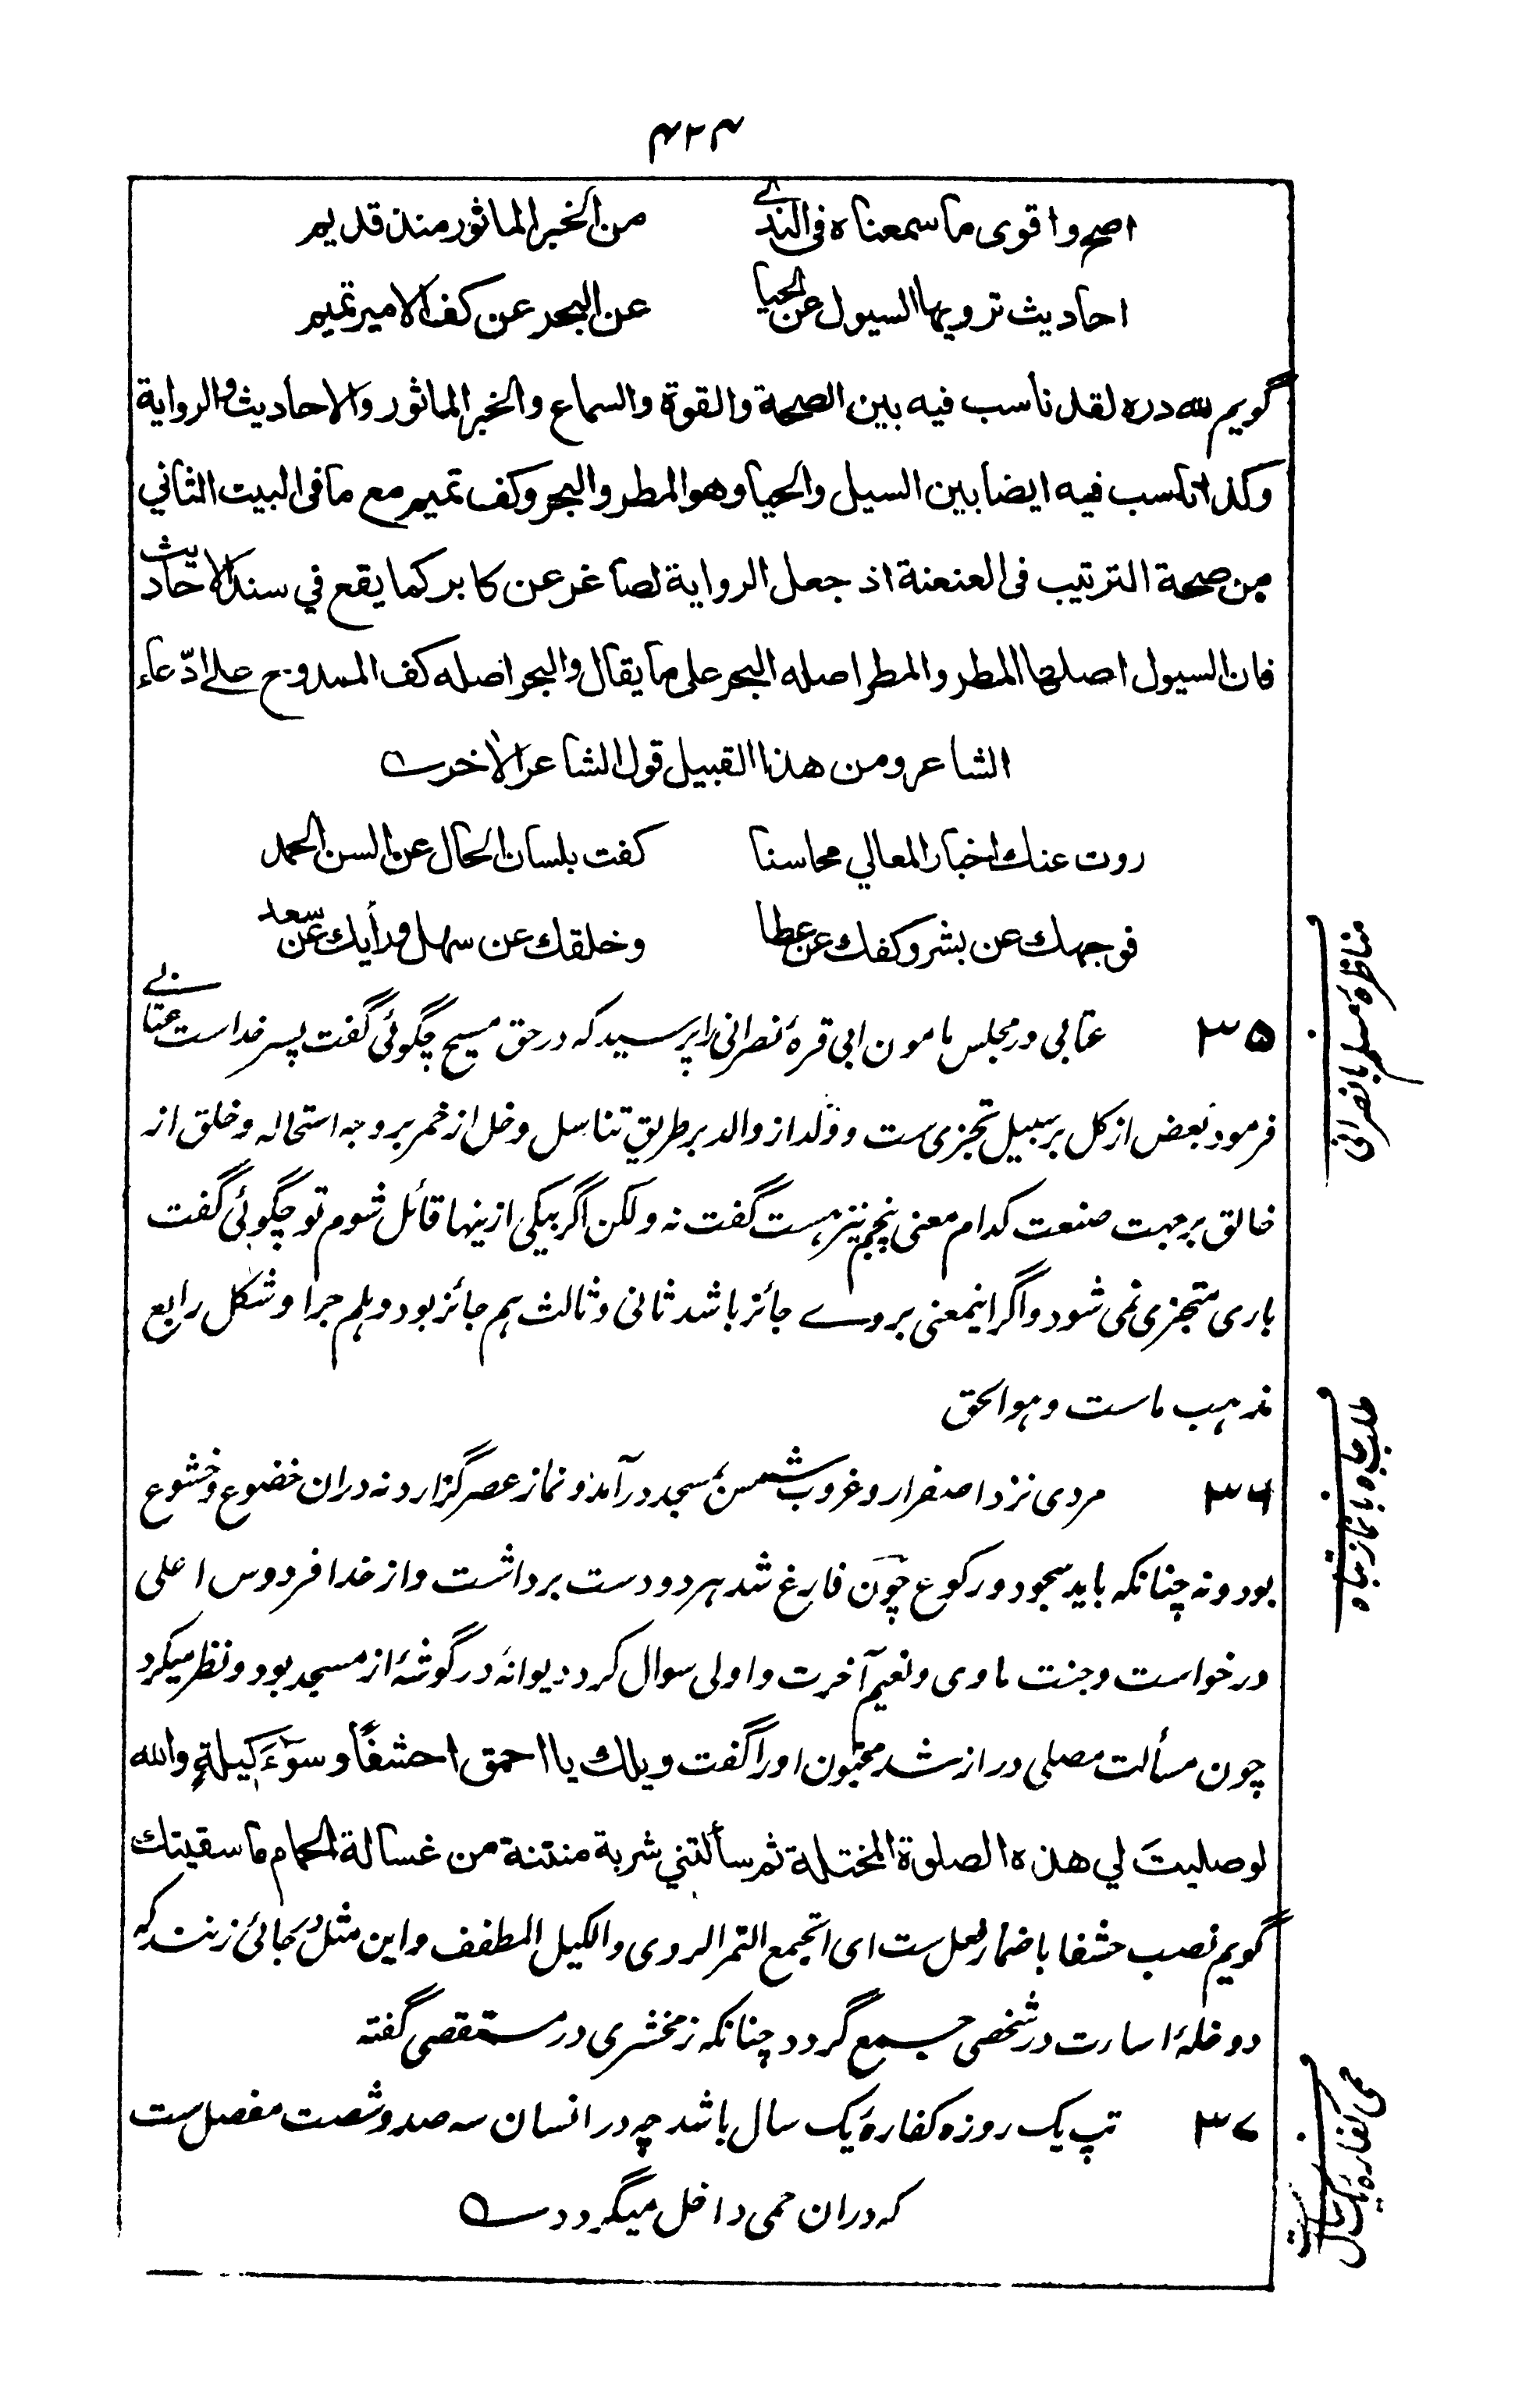 ۴۲۴
اصح واقوی ما سمعناه فی الندے من الخبر الماثور منذ قدیم
احادیث ترویها السیول عن الحیا عن البحر عن کف الامیر تمیم
گویم لله دره لقد ناسب فیه بین الصحة والقوة والسماع والخبر الماثور والاحادیث والروایة
وکذا ناسب فیه ایضا بین السیل والحیا وهو المطر والبحر وکف تمیم مع ما فی البیت الثانی
من صحة الترتیب فی العنعنة اذ جعل الروایة لصاغر عن کابر کما یقع فی سند الاحادیث
فان السیول اصلها المطر والمطر اصله البحر علی ما یقال والبحر اصله کف الممدوح علے ادّعاء
الشاعر ومن هذا القبیل قول الشاعر الاٰخر ؎
روت عنك اخبار المعالی محاسنا کفت بلسان الحال عن السن الحمد
فوجهك عن بشر وکفك عن عطا وخلقك عن سهل ورأیك عن سعد
۳۵ عتابی در مجلس مامون ابی قرهٔ نصرانی را پرسید که در حق مسیح چگوئی گفت پسر خداست عتابے
فرمود بعض از کل بر سبیل تجزی ست و ولد از والد بر طریق تناسل و خل از خمر بر وجه استحاله و خلق از
خالق بر جهت صنعت کدام معنی پنجم نیز هست گفت نه ولکن اگر بیکی ازینها قائل شوم تو چگوئی گفت
باری متجزی نمی شود و اگر اینمعنی بر وے جائز باشد ثانی و ثالث هم جائز بود و هلم جرا و شکل رابع
مذهب ماست و هو الحق
۳۶ مردی نزد اصفرار و غروب شمس بمسجد درآمد و نماز عصر گزارد نه دران خضوع و خشوع
بود و نه چنانکه باید سجود و رکوع چون فارغ شد هر دو دست برداشت و از خدا فردوس اعلی
درخواست و جنت ماوی و نعیم آخرت و اولی سوال کرد دیوانهٔ در گوشهٔ از مسجد بود و نظر میکرد
چون مسألت مصلی دراز شد مجنون او را گفت ویلك یا احمق احشفًا وسوٓءَ کیلةٍ والله
لو صلیتَ لی هذه الصلوة المختلة ثم سألتنی شربة منتنة من غسالة الحمام ما سقیتك
گویم نصب حشفا باضمار فعل ست ای اتجمع التمر الردی والکیل المطفف و این مثل بجائی زنند که
دو خلهٔ اسارت در شخصی جمع گردد چنانکه زمخشری در مستقصی گفته
۳۷ تپ یک روزه کفارهٔ یک سال باشد چه در انسان سه صد و شصت مفصل ست
که دران حمی داخل میگردد ؎
مناظره مسلم با نصرانی
حمی کفارهٔ یک سال ست